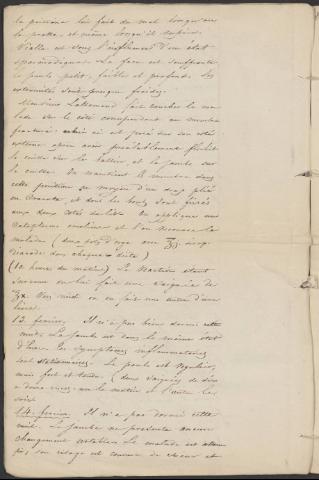 la poitrine lui fait du mal lorsqu'on
la palpe, et même lorsqu'il respire.
Vialla est sous l'influence d'un état
spasmodique. La face est souffrante
le pouls petit, faible et profond. Les
extrémités sont presque froides.
Monsieur Lallemand fait coucher le ma-
lade sur le côté correspondant au membre
fracturé. celui ci est posé sur son côté
externe après avoir préalablement fléchi
la cuisse sur le bassin, et la jambe sur
la cuisse. On maintient le membre dans
cette position au moyen d'un drap plié
en cravate, et dont les bouts sont fixés
aux deux côtés du lit. On applique un
cataplasme émollient et l'on
malade (deux pots d'orge
diacode dans chaque = diète)
(10 heures du matin) La réaction étant
survenue on lui fait une saignée de
℥x. Vers midi on en fait une autre d'une
livre.
13. fevrier. Il n'a pas bien dormi cette
nuit. La jambe est dans le même état
d'hier. les symptomes inflammatoires
sont stationnaires. Le pouls est régulier,
mais fort et tendu. (deux saignées de dix
à douze onces, une le matin et l'autre le
soir)
14. fevrier. Il n'a pas dormi cette
nuit. La jambe ne présente aucun
changement notable. Le malade est
son visage est couvert de sueur et